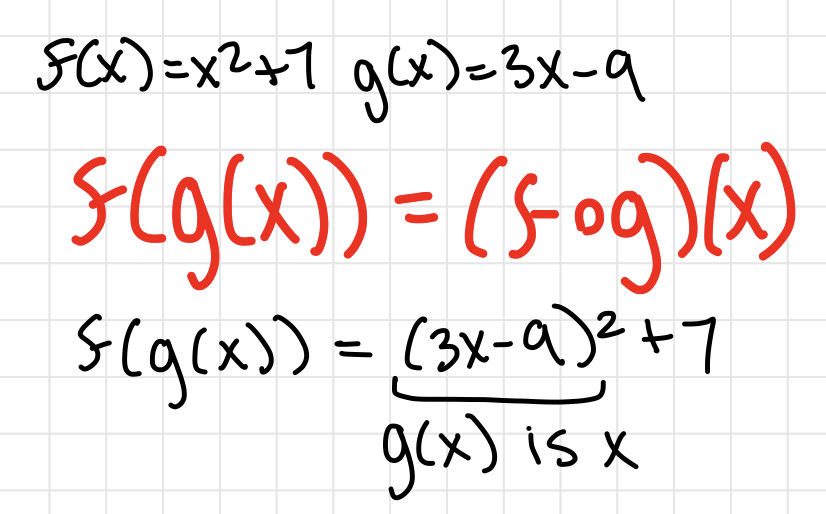 f(x)=x²+7 g(x)=3x-9
f(g(x)) = (f∘g)(x)
f(g(x)) = (3x-9)²+7
g(x) is x